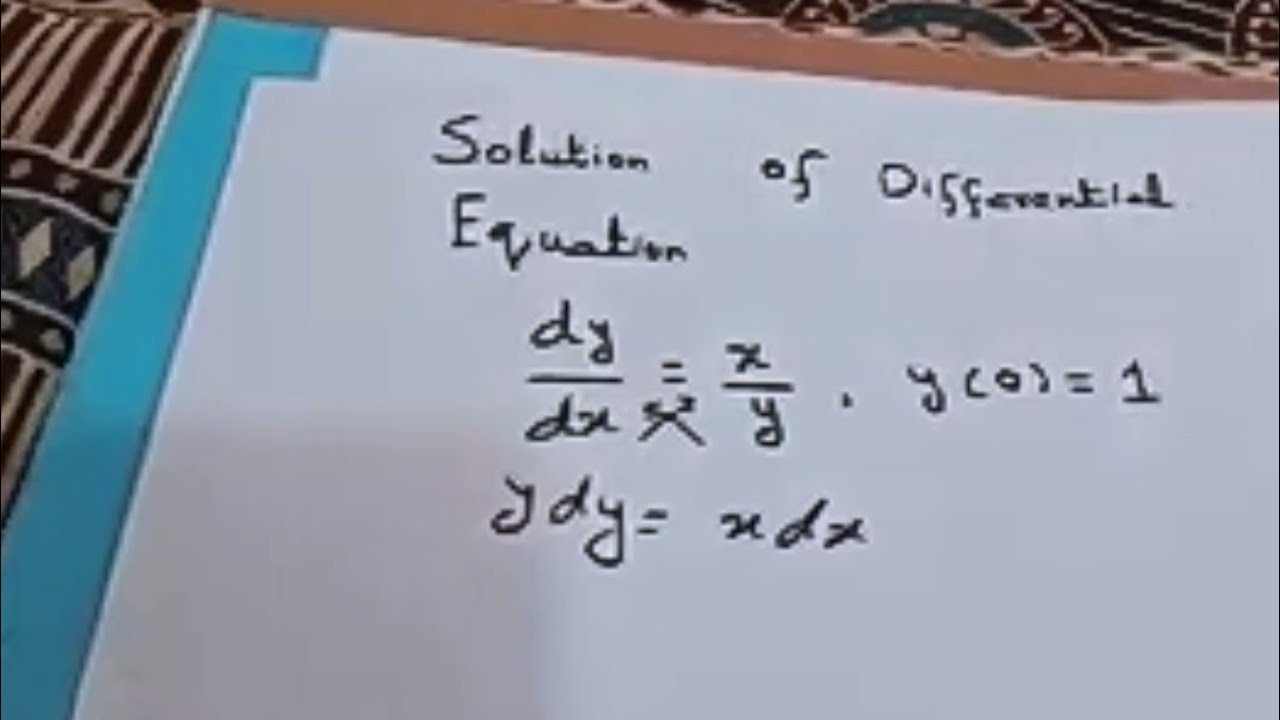 Solution of Differential
Equation
dy/dx = x/y , y(0) = 1
y dy = x dx